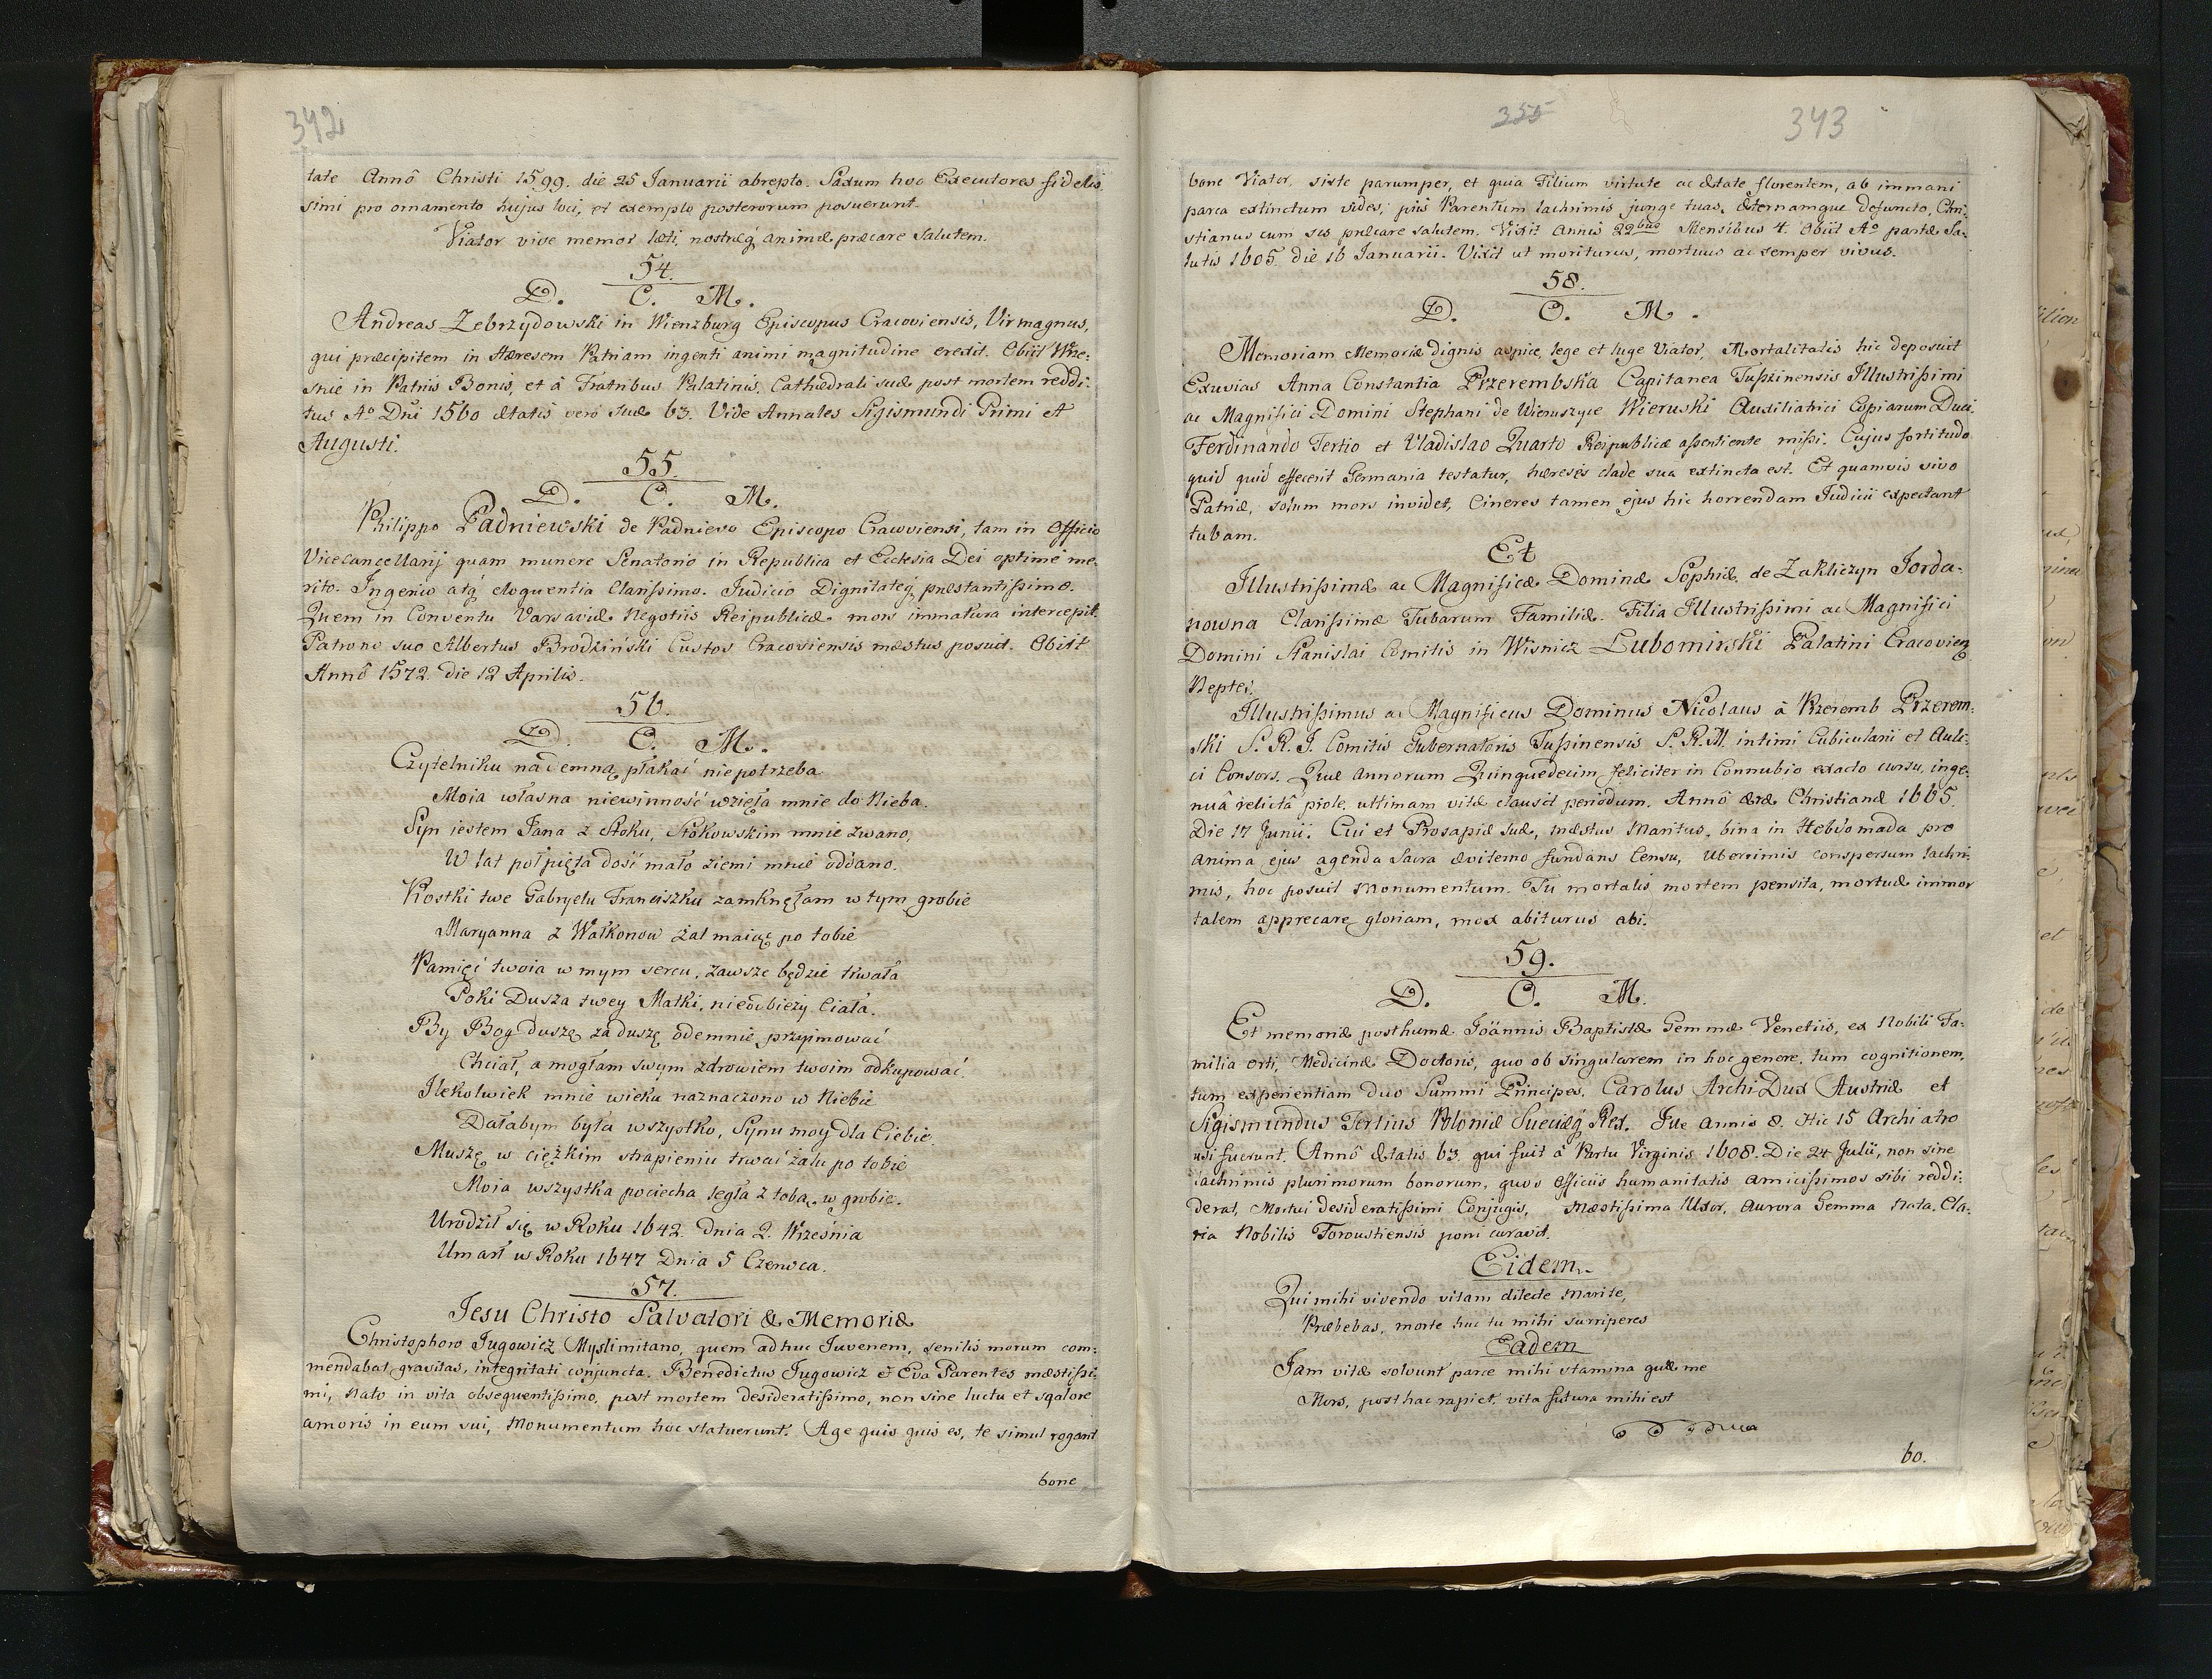 342
tate Annô Christi 1599. die 25 Januarii abrepto. Saxum hoc Executores fidelis,
simi pro ornamento hujus loci, et exemplo posterorum posuerunt.
Viator vive memor læti, nostræq́ animæ præcare Salutem.
54.
D. O. M.
Andreas Zebrzydowski in Wienzburg Episcopus Cracoviensis, Vir magnus,
qui præcipitem in Hæresem Patriam ingenti animi magnitudine erexit. Obiit Wie:
snie in Patriis Bonis, et à Fratribus Palatinis, Cathædrali suæ post mortem reddi:
tus Aº Dñi 1560 ætatis veró suæ 63. Vide Annales Sigismundi Primi et
Augusti.
55.
D. O. M.
Philippo Padniewski de Padnievo Episcopo Cracoviensi, tam in Officio
ViceCancellarij quam munere Senatorio in Republica et Ecclesia Dei optimé me:
rito. Ingenio atq́ eloquentia Clarißimo. Judicio Dignitateq́ præstantißimo.
Quem in Conventu Varsaviæ Negotiis Reipublicæ mors immatura intercepit.
Patrono suo Albertus Brodziński Custos Cracoviensis mæstus posuit. Obiit
Annô 1572. die 12 Aprilis.
56.
D. O. M.
Czytelniku nademną płakać niepotrzeba
Moia własna niewinność wzięła mnie do Nieba.
Syn iestem Jana z Stoku, Stokowskim mnie zwano,
W lat połpięta dość mało ziemi mnie oddano.
Kostki twe Gabryelu Franciszku zamknęłam w tym grobie
Maryanna z Wałkonow żal maiąc po tobie
Pamięć twoia w mym sercu, zawsze będzie trwała
Poki Dusza twey Matki, nieodbieży Ciała.
By Bog duszę za duszę odemnie przyimować
Chciał, a mogłam swym zdrowiem twoim odkupować.
Ilekolwiek mnie wieku naznaczono w Niebie
Dałabym była wszystko, Synu moy dla Ciebie.
Muszę w ciężkim strapieniu trwać żalu po tobie
Moia wszystka pociecha legła z tobą w grobie.
Urodził się w Roku 1642. Dnia 2. Września
Umarł w Roku 1647 Dnia 5 Czerwca.
57.
Jesu Christo Salvatori & Memoriæ
Christophoro Jugowicz Myslimitano, quem adhuc Juvenem, senilis morum com:
mendabat, gravitas, integritati conjuncta. Benedictus Jugowicz & Eva Parentes mæstißi:
mi, Nato in vita obsequentißimo, post mortem desideratißimo, non sine luctu et sqalore
amoris in eum sui, Monumentum hoc statuerunt. Age quis quis es, te simul rogant
bone
355 343
bone Viator, siste parumper, et quia Filium virtute ac ætate florentem, ab immani
parca extinctum vides; piis Parentum lachrimis junge tuas, æternamque defuncto, Chri:
stianus cum sis præcare salutem. Vixit annis 22bus Mensibus 4. Obiit Aº partæ Sa:
lutis 1605 die 16 Januarii. Vixit ut moriturus, mortuus ac semper vivus.
58.
D. O. M.
Memoriam Memoriæ dignis aspice, lege et luge Viator, Mortalitatis hic deposuit
Exuvias Anna Constantia Przerembska Capitanea Tuszinensis Illustrißimi
ac Magnifici Domini Stephani de Wieruszyce Wieruski Auxiliatrici Copiarum Duci.
Ferdinando Tertio et Vladislao Quarto Reipublicæ aßentiente mißi. Cujus fortitudo
quid quid effecerit Germania testatur, hæresis clade sua extincta est. Et quamvis vivo
Patriæ, solum mors invidet, Cineres tamen ejus hic horrendam Judicii expectant
tubam.
Et
Illustrißimæ ac Magnificæ Dominæ Sophiæ de Zakliczyn Jorda:
nowna Clarißimæ Tubarum Familiæ. Filia Illustrißimi ac Magnifici
Domini Stanislai Comitis in Wisnicz Lubomirski Palatini Cracovien
Neptei.
Illustrißimus ac Magnificus Dominus Nicolaus à Przeremb Przerem:
ski S. R. J. Comitis Gubernatoris Tußinensis S. R. M. intimi Cubicularii et Auli:
ci Consors. Quæ annorum Quinquedecim feliciter in Connubio exacto cursu, inge:
nuâ relictâ prole, ultimam vitæ clausit periodum. Annô æræ Christianæ 1665.
Die 17 Junii. Cui et Prosapiæ suæ, mæstus Maritus, bina in Hebdomada pro
anima ejus agenda Sacra æviterno fundans Censu, uberrimis conspersum lachri:
mis, hoc posuit Monumentum. Tu mortalis mortem pensita, mortuæ immor
talem apprecare gloriam, mox abiturus abi.
59.
D. O. M.
Et memoriæ posthumæ Joännis Baptistæ Gemmæ Venetiis, ex Nobili Fa:
milia orti, Medicinæ Doctoris, quo ob singularem in hoc genere, tum cognitionem,
tum experientiam duo Summi Principes, Carolus ArchiDux Austriæ et
Sigismundus Tertius Poloniæ Sueciæq́ Rex. Ille annis 8. Hic 15 Archiatro
usi fuerunt. Annô ætatis 63. qui fuit à Partu Virginis 1608. Die 24 Julii, non sine
lachrimis plurimorum bonorum, quos officiis humanitatis amicißimos sibi reddi:
derat, Mortui desideratißimi Conjugis, Mæstißima Uxor, Aurora Gemma Nata, Cla:
ria Nobilis Foroustiensis poni curavit.
Eidem.
Qui mihi vivendo vitam dilecte Marite,
Præbebas, morte hac tu mihi surriperes
Eadem
Jam vitæ solvunt parcæ mihi stamina quæ me
Mors, posthac rapiet, vita futura mihi est
60.